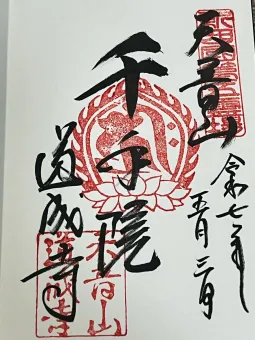 天音山
令和七年
五月三日
千手院
道成寺
天音山
道成寺